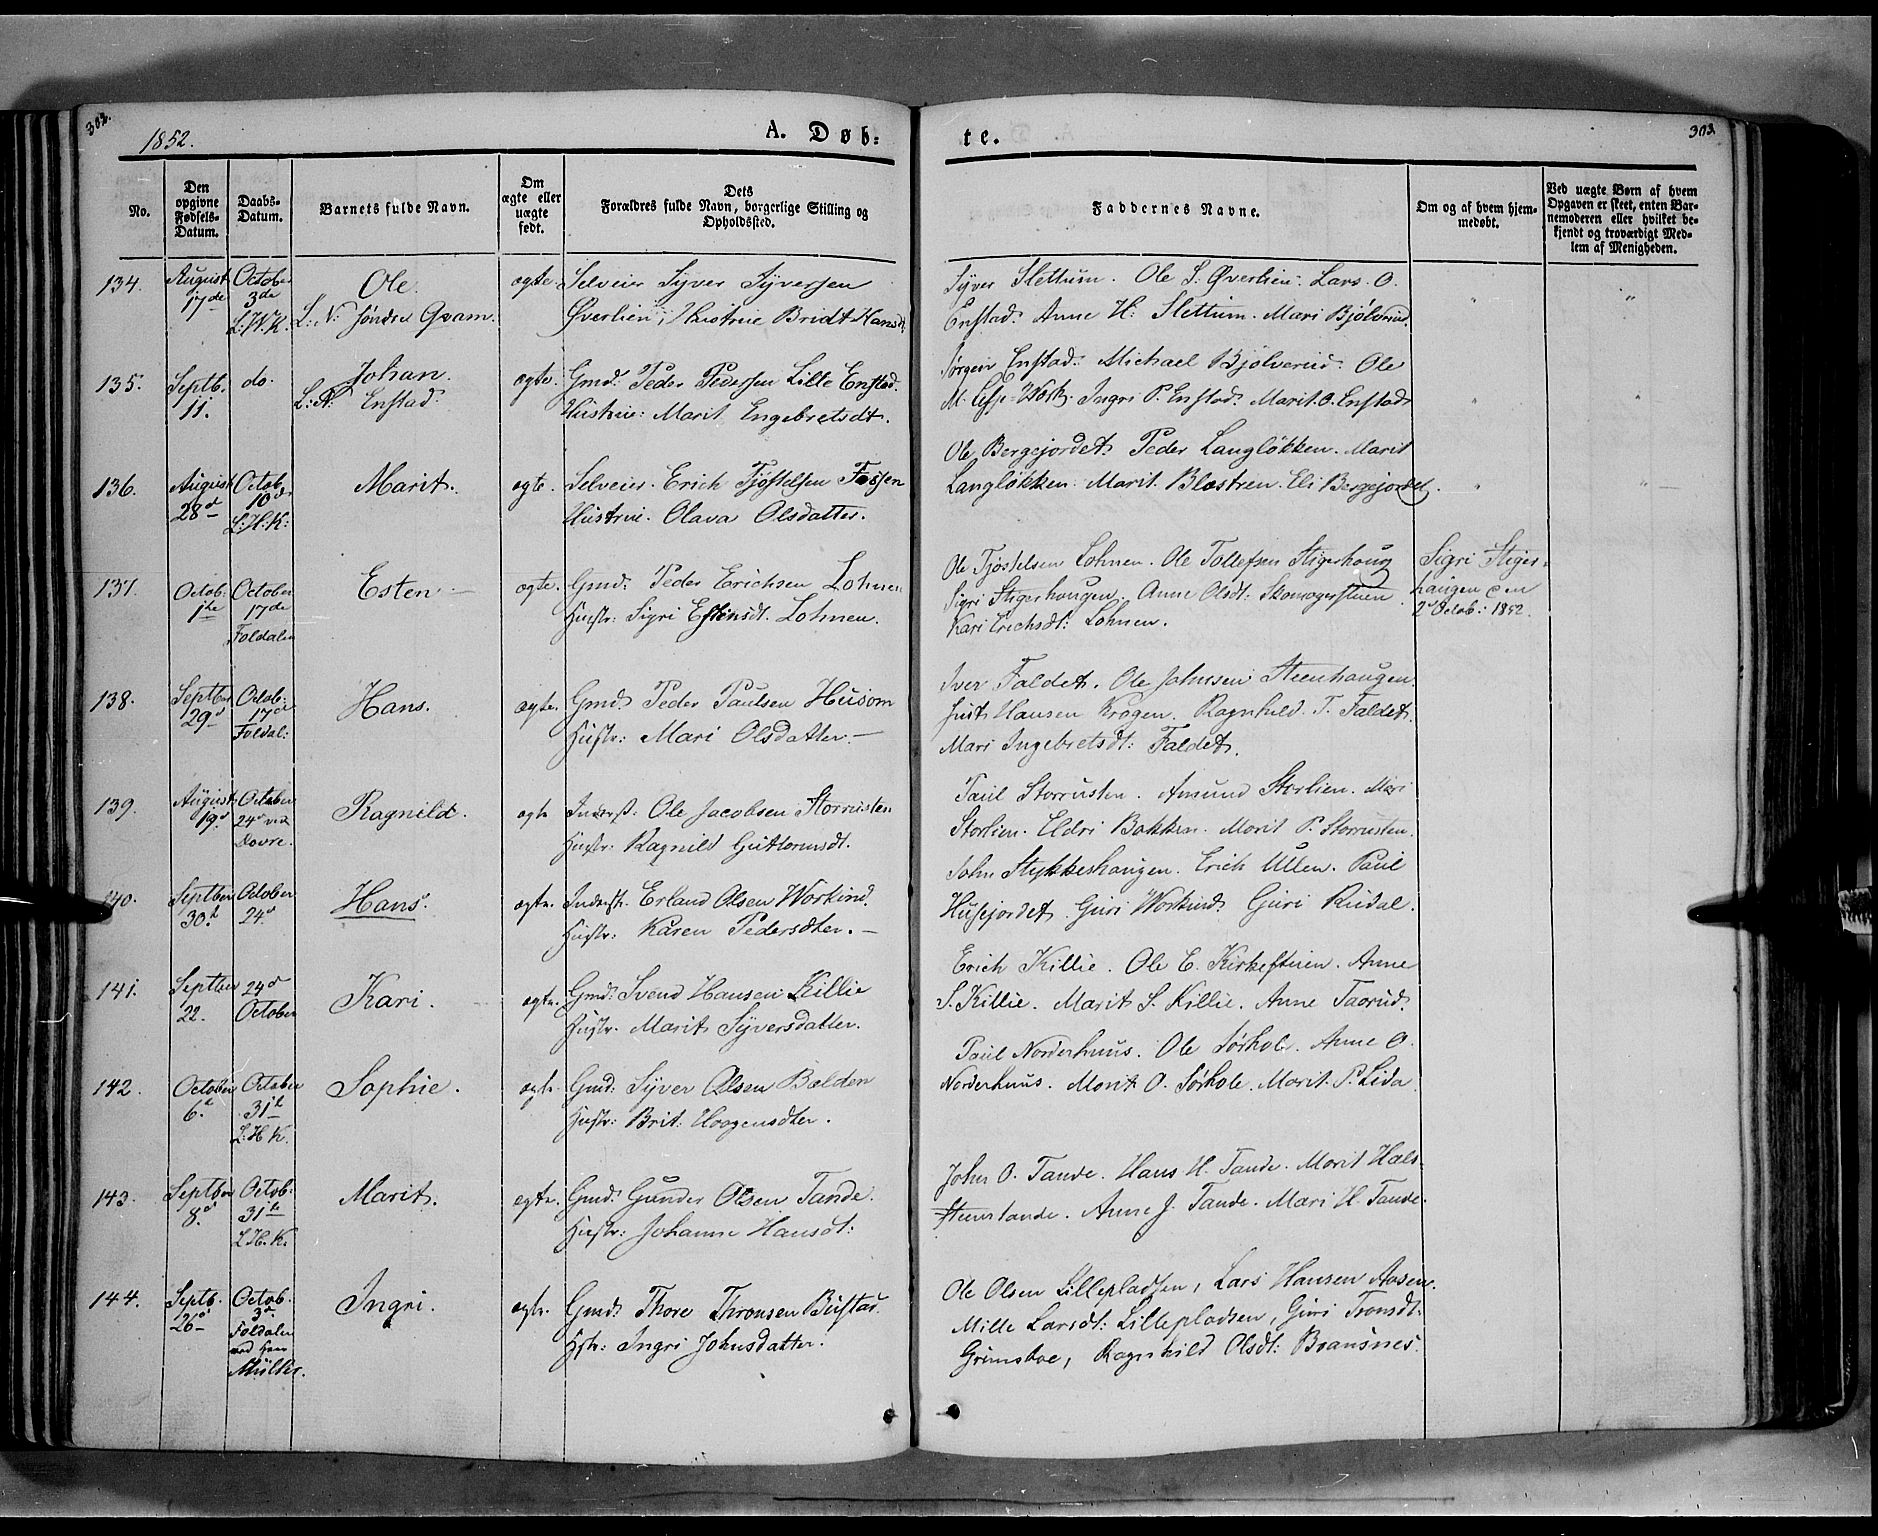 302.
1852.
A. Døb-
te.
303
No.
Den opgivne Fødsels-Datum.
Daabs-Datum.
Barnets fulde Navn.
Om ægte eller uægte født.
Dets Forældres fulde Navn, borgerlige Stilling og Opholdssted.
Faddernes Navne.
Om og af hvem hjem-medøbt.
Ved uægte Børn af hvem Opgaven er skeet, enten Bar-nemoderen eller hvilket be-kjendt og troværdigt Med-lem af Menigheden.
134. August 17de Octobr 3de L:W.K. Ole. ægte. Selveier Syver Syversen
L: N: Søndre Qvam. Øverlien, Hustrue Bridt Hansdt
Syver Slettum. Ole S. Øverlien. Lars. O.
Enstad. Anne H: Slettum. Mari Bjølverud.
135. Septb. 11. do. Johan. ægte. Gmd: Peder Pedersen Lille Enstad.
L:N: Enstad. Hustrue: Marit Engebretsdt.
Jørgen Enstad. Michael Bjølverud. Ole
M. Lesje-Værk. Ingri P. Enstad. Marit. O. Enstad
136. August 28d Octob 10d L:H:K: Marit. ægte. Selveier. Erich Tjøstelsen Fossen
Hustrue. Olava Olsdatter.
Ole Bergejordet Peder Langløkken. Marit
Langløkken. Marit Blæstren. Eli Bergejordet.
137. Octob. 1te October 17de Foldalen Esten ægte. Gmd: Peder Erichsen Lohnen
Hustr: Sigri Estensdt. Lohnen.
Ole Tjøstelsen Lohnen. Ole Tollefsen Stigerhoug
Sigri Stigerhougen. Anne Olsdt: Skomagerstuen
Kari Erichsdt: Lohnen.
Sigri Stiger-
haugen den
2d Octob: 1852.
138. Septber 29d Octob: 17de Foldal: Hans. ægte. Gmd. Peder Paulsen Husom
Hustr: Mari Olsdatter.
Iver Faldet. Ole Johnsen Steenhaugen.
Just Hansen Krogen. Ragnhild T. Faldet.
Mari Ingebretsdt: Faldet.
139. August 19d October 24d ved Dovre. Ragnild. ægte Inderst. Ole Jacobsen Storrusten
Hustr: Ragnild Guttormsdt.
Paul Storrusten. Amund Storlien. Mari
Storlien. Eldri Bakken. Marit P. Storrusten.
140. Septber 30d October 24d Hans. ægte. Inderst. Erland Olsen Workind.
Hustr: Karen Pedersdter.
John Stykkeshaugen. Erich Ullen. Paul
Husejordet. Guri Workind. Guri Rudal.
141. Septber 22. 24d October Kari. ægte. Gmd. Svend Hansen Killie
Hustr. Marit Syversdatter.
Erich Killie. Ole E. Kirkestuen. Anne
S. Killie. Marit S. Killie. Anne Taarud.
142. October 6t October 31t L:H.K. Sophie. ægte Gmd: Syver Olsen Bælden
Hustr: Brit: Haagensdter.
Paul Norderhuus. Ole Sørhole. Anne O.
Norderhuus. Marit O. Sørhole. Marit. P. Lida
143. Septber 8d Octob: 31te L.H.K. Marit. ægte. Gmd: Gunder Olsen Tande.
Hustr: Johanne Hansdt:
John O. Tande. Hans H. Tande. Marit Hals-
steentande. Anne J. Tande. Mari H. Tande.
144. Septb. 26d Octob. 3d Foldalen ved Herr Müller. Ingri. ægte. Gmd. Thore Thronsen Bustad
Hstr: Ingri Johnsdatter.
Ole Olsen Lillepladsen, Lars Hansen Aasen.
Mille Larsdt: Lillepladsen, Guri Tronsdt.
Grimsboe, Ragnhild Olsdt: Brænsnes.